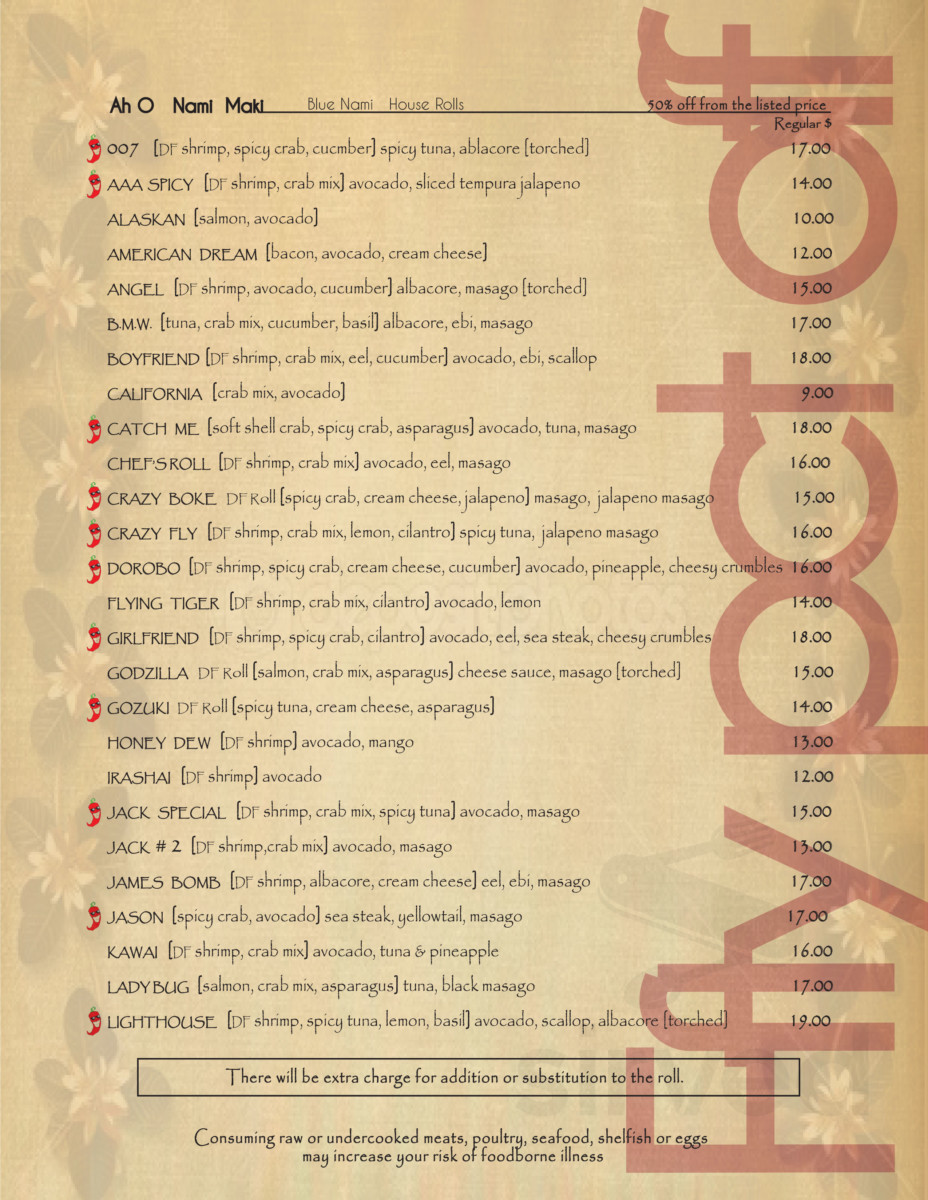 Ah O Nami Maki Blue Nami House Rolls 50% off from the listed price
Regular $
007 [DF shrimp, spicy crab, cucmber] spicy tuna, ablacore [torched] 17.00
AAA SPICY [DF shrimp, crab mix] avocado, sliced tempura jalapeno 14.00
ALASKAN [salmon, avocado] 10.00
AMERICAN DREAM [bacon, avocado, cream cheese] 12.00
ANGEL [DF shrimp, avocado, cucumber] albacore, masago [torched] 15.00
B.M.W. [tuna, crab mix, cucumber, basil] albacore, ebi, masago 17.00
BOYFRIEND [DF shrimp, crab mix, eel, cucumber] avocado, ebi, scallop 18.00
CALIFORNIA [crab mix, avocado] 9.00
CATCH ME [soft shell crab, spicy crab, asparagus] avocado, tuna, masago 18.00
CHEF'S ROLL [DF shrimp, crab mix] avocado, eel, masago 16.00
CRAZY BOKE DF Roll [spicy crab, cream cheese, jalapeno] masago, jalapeno masago 15.00
CRAZY FLY [DF shrimp, crab mix, lemon, cilantro] spicy tuna, jalapeno masago 16.00
DOROBO [DF shrimp, spicy crab, cream cheese, cucumber] avocado, pineapple, cheesy crumbles 16.00
FLYING TIGER [DF shrimp, crab mix, cilantro] avocado, lemon 14.00
GIRLFRIEND [DF shrimp, spicy crab, cilantro] avocado, eel, sea steak, cheesy crumbles 18.00
GODZILLA DF Roll [salmon, crab mix, asparagus] cheese sauce, masago [torched] 15.00
GOZUKI DF Roll [spicy tuna, cream cheese, asparagus] 14.00
HONEY DEW [DF shrimp] avocado, mango 13.00
IRASHAI [DF shrimp] avocado 12.00
JACK SPECIAL [DF shrimp, crab mix, spicy tuna] avocado, masago 15.00
JACK # 2 [DF shrimp,crab mix] avocado, masago 13.00
JAMES BOMB [DF shrimp, albacore, cream cheese] eel, ebi, masago 17.00
JASON [spicy crab, avocado] sea steak, yellowtail, masago 17.00
KAWAI [DF shrimp, crab mix] avocado, tuna & pineapple 16.00
LADY BUG [salmon, crab mix, asparagus] tuna, black masago 17.00
LIGHTHOUSE [DF shrimp, spicy tuna, lemon, basil] avocado, scallop, albacore [torched] 19.00
There will be extra charge for addition or substitution to the roll.
Consuming raw or undercooked meats, poultry, seafood, shelfish or eggs
may increase your risk of foodborne illness